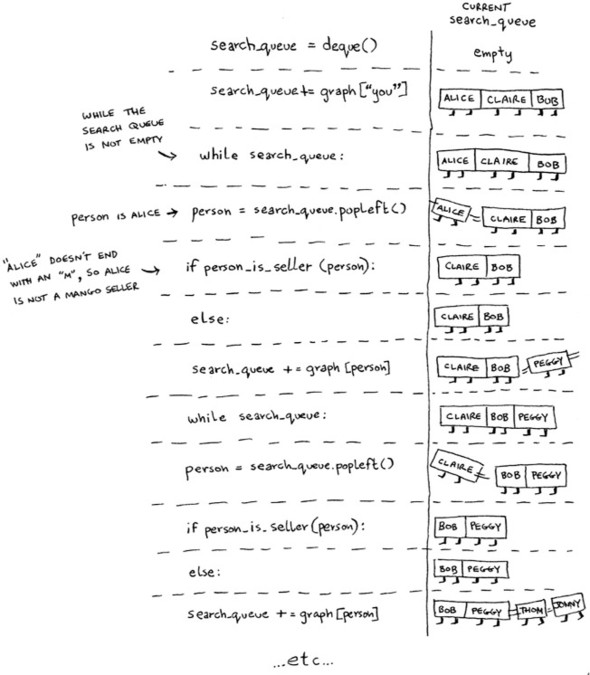 CURRENT
search_queue
search_queue = deque()
empty
search_queue += graph["you"]
ALICE CLAIRE BOB
WHILE THE
SEARCH QUEUE
IS NOT EMPTY
while search_queue:
ALICE CLAIRE BOB
PERSON IS ALICE → person = search_queue.popleft()
ALICE CLAIRE BOB
"ALICE" DOESN'T END
WITH AN "M", SO ALICE
IS NOT A MANGO SELLER
if person_is_seller (person):
CLAIRE BOB
else:
CLAIRE BOB
search_queue += graph [person]
CLAIRE BOB PEGGY
while search_queue:
CLAIRE BOB PEGGY
person = search_queue.popleft()
CLAIRE BOB PEGGY
if person_is_seller (person):
BOB PEGGY
else:
BOB PEGGY
search_queue += graph [person]
BOB PEGGY THOM JONNY
...etc...